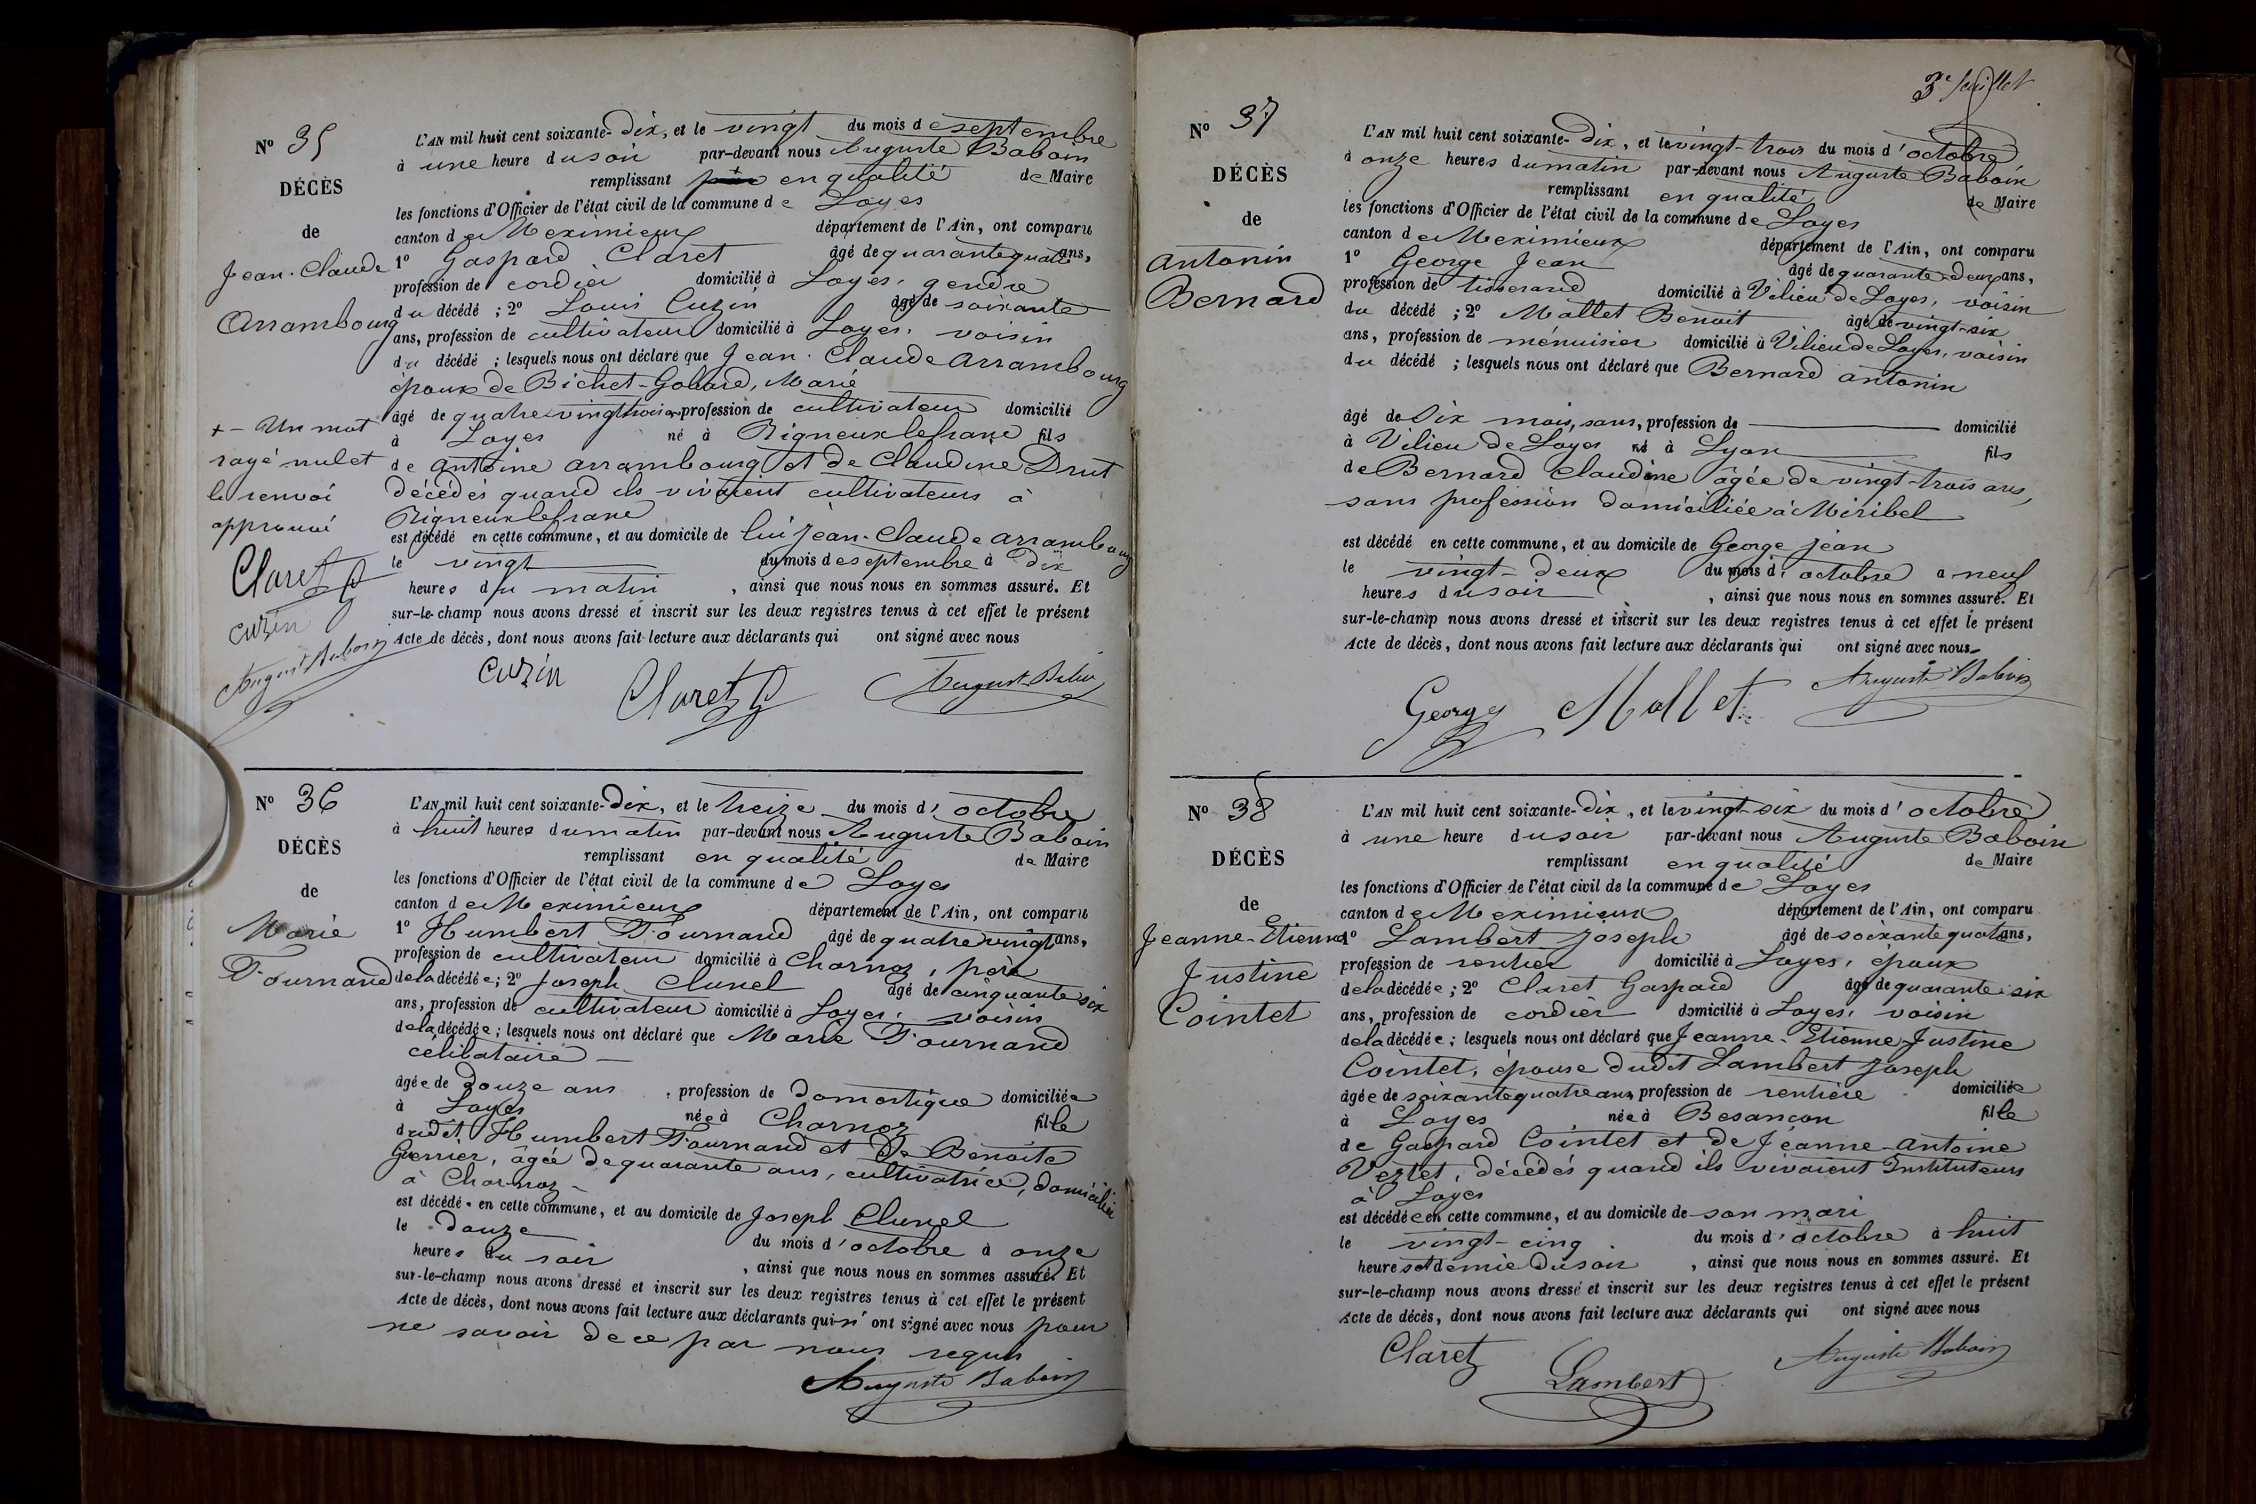 N° 35
DÉCÈS
de
Jean-Claude
Arrambourg
+ - Un mot
rayé nul et
le renvoi
approuvé
Claret G
Cuzin
August Baboin
L'AN mil huit cent soixante-Dix, et le vingt du mois de septembre
à une heure du soir par-devant nous Auguste Baboin
remplissant + en qualité de Maire
les fonctions d'Officier de l'état civil de la commune de Loyes
canton de Meximieux département de l'Ain, ont comparu
1° Gaspard Claret âgé de quarante quatre ans,
profession de cordier domicilié à Loyes, gendre
du décédé ; 2° Louis Cuzin âgé de soixante
ans, profession de cultivateur domicilié à Loyes, voisin
du décédé ; lesquels nous ont déclaré que Jean-Claude Arrambourg
époux de Bichet-Gobard, Marie
âgé de quatre vingt trois ans profession de cultivateur domicilié
à Loyes né à Rigneux le franc fils
de Antoine Arrambourg et de Claudine Drut
décédés quand ils vivaient cultivateurs à
Rigneux le franc
est décédé en cette commune, et au domicile de lui Jean-Claude Arrambourg
le vingt du mois de septembre à Dix
heures du matin , ainsi que nous nous en sommes assuré. Et
sur-le-champ nous avons dressé et inscrit sur les deux registres tenus à cet effet le présent
Acte de décès, dont nous avons fait lecture aux déclarants qui ont signé avec nous
Cuzin Claret G August Baboin
N° 36
DÉCÈS
de
Marie
Fournand
L'AN mil huit cent soixante-Dix, et le treize du mois d'octobre
à huit heures du matin par-devant nous Auguste Baboin
remplissant en qualité de Maire
les fonctions d'Officier de l'état civil de la commune de Loyes
canton de Meximieux département de l'Ain, ont comparu
1° Humbert Fournand âgé de quatre vingt ans,
profession de cultivateur domicilié à Charnoz, père
de la décédée ; 2° Joseph Clunel âgé de cinquante six
ans, profession de cultivateur domicilié à Loyes, voisin
de la décédée ; lesquels nous ont déclaré que Marie Fournand
célibataire
âgée de Douze ans , profession de Domestique domiciliée
à Loyes née à Charnoz fille
dudit Humbert Fournand et De Benoite
Guerrier, âgée de quarante ans, cultivatrice, domiciliée
à Charnoz
est décédé en cette commune, et au domicile de Joseph Clunel
le Douze du mois d'octobre à onze
heures du soir , ainsi que nous nous en sommes assuré. Et
sur-le-champ nous avons dressé et inscrit sur les deux registres tenus à cet effet le présent
Acte de décès, dont nous avons fait lecture aux déclarants qui n' ont signé avec nous pour
ne savoir de ce par nous requis
Auguste Baboin
3e feuillet
N° 37
DÉCÈS
de
Antonin
Bernard
L'AN mil huit cent soixante-Dix, et le vingt-trois du mois d'octobre
à onze heures du matin par-devant nous Auguste Baboin
remplissant en qualité de Maire
les fonctions d'Officier de l'état civil de la commune de Loyes
canton de Meximieux département de l'Ain, ont comparu
1° George Jean âgé de quarante-deux ans,
profession de tisserand domicilié à Vilieu de Loyes, voisin
du décédé ; 2° Mallet Benoit âgé de vingt-six
ans, profession de menuisier domicilié à Vilieu de Loyes, voisin
du décédé ; lesquels nous ont déclaré que Bernard Antonin
âgé de Dix mois, sans, profession de domicilié
à Vilieu de Loyes né à Lyon fils
de Bernard Claudine âgée de vingt-trois ans,
sans profession domiciliée à Miribel
est décédé en cette commune, et au domicile de George Jean
le vingt-deux du mois d'octobre à neuf
heures du soir , ainsi que nous nous en sommes assuré. Et
sur-le-champ nous avons dressé et inscrit sur les deux registres tenus à cet effet le présent
Acte de décès, dont nous avons fait lecture aux déclarants qui ont signé avec nous
George Mallet Auguste Baboin
N° 38
DÉCÈS
de
Jeanne-Etienne
Justine
Cointet
L'AN mil huit cent soixante-Dix, et le vingt-six du mois d'octobre
à une heure du soir par-devant nous Auguste Baboin
remplissant en qualité de Maire
les fonctions d'Officier de l'état civil de la commune de Loyes
canton de Meximieux département de l'Ain, ont comparu
1° Lambert Joseph âgé de soixante quatre ans,
profession de rentier domicilié à Loyes, époux
de la décédée ; 2° Claret Gaspard âgé de quarante six
ans, profession de cordier domicilié à Loyes, voisin
de la décédée ; lesquels nous ont déclaré que Jeanne-Etienne-Justine
Cointet, épouse dudit Lambert Joseph
âgée de soixante quatre ans profession de rentière domiciliée
à Loyes née à Besançon fille
de Gaspard Cointet et de Jeanne-Antoine
Verlet, décédés quand ils vivaient Instituteurs
à Loyes
est décédée en cette commune, et au domicile de son mari
le vingt-cinq du mois d'octobre à huit
heures et demie du soir , ainsi que nous nous en sommes assuré. Et
sur-le-champ nous avons dressé et inscrit sur les deux registres tenus à cet effet le présent
Acte de décès, dont nous avons fait lecture aux déclarants qui ont signé avec nous
Claret Lambert Auguste Baboin